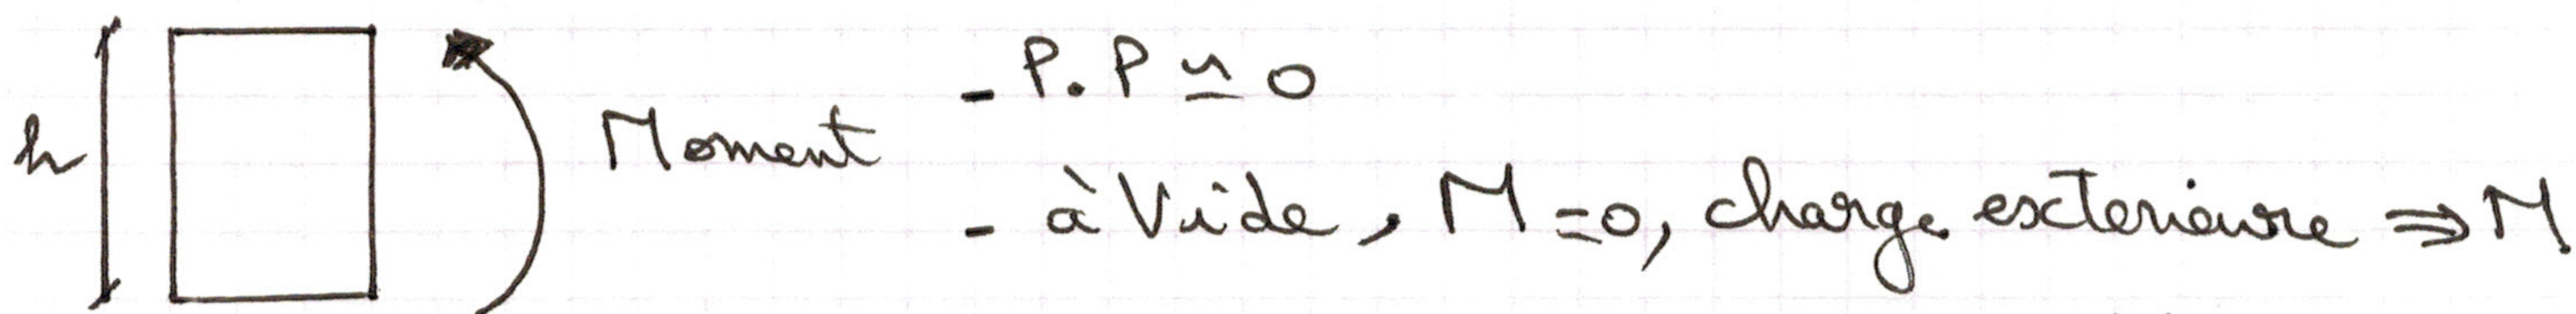 h
Moment
- P.P ≃ 0
- à Vide, M=0, charge exterieure ⇒ M